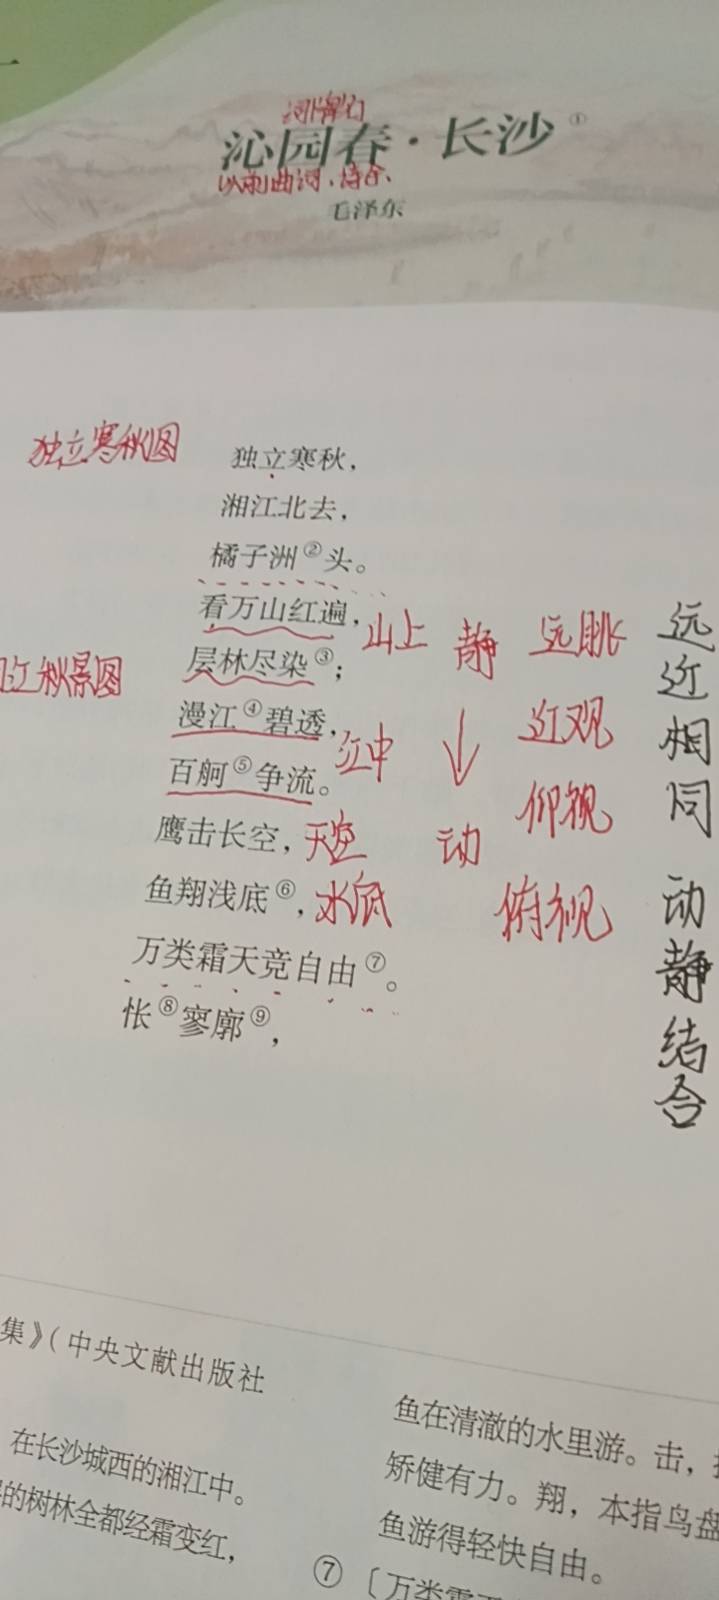 词牌名
沁园春·长沙①
毛泽东
独立寒秋图
独立寒秋，
湘江北去，
橘子洲②头。
看万山红遍，山上 静 远眺
层林尽染③；
秋景图
漫江④碧透，江中 近观
百舸⑤争流。
仰视
鹰击长空，天空 动
鱼翔浅底⑥，水底 俯视
万类霜天竞自由⑦。
怅⑧寥廓⑨，
远近相同 动静结合
集》（中央文献出版社
在长沙城西的湘江中。
的树林全都经霜变红，
鱼在清澈的水里游。击，
矫健有力。翔，本指鸟盘
鱼游得轻快自由。
⑦〔万类霜天